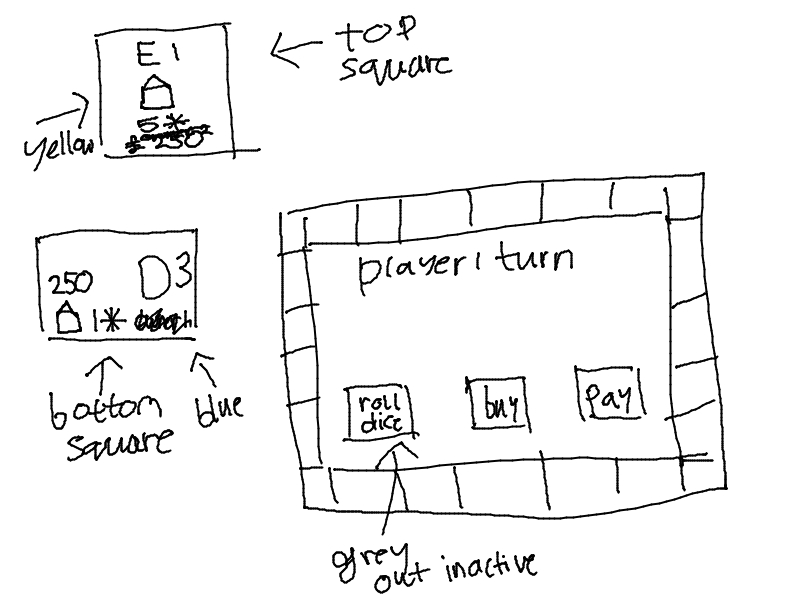 E1
5*
250
top
square
yellow
250 D3
1*
bottom
square
blue
player1 turn
roll
dice
buy
pay
grey
out inactive